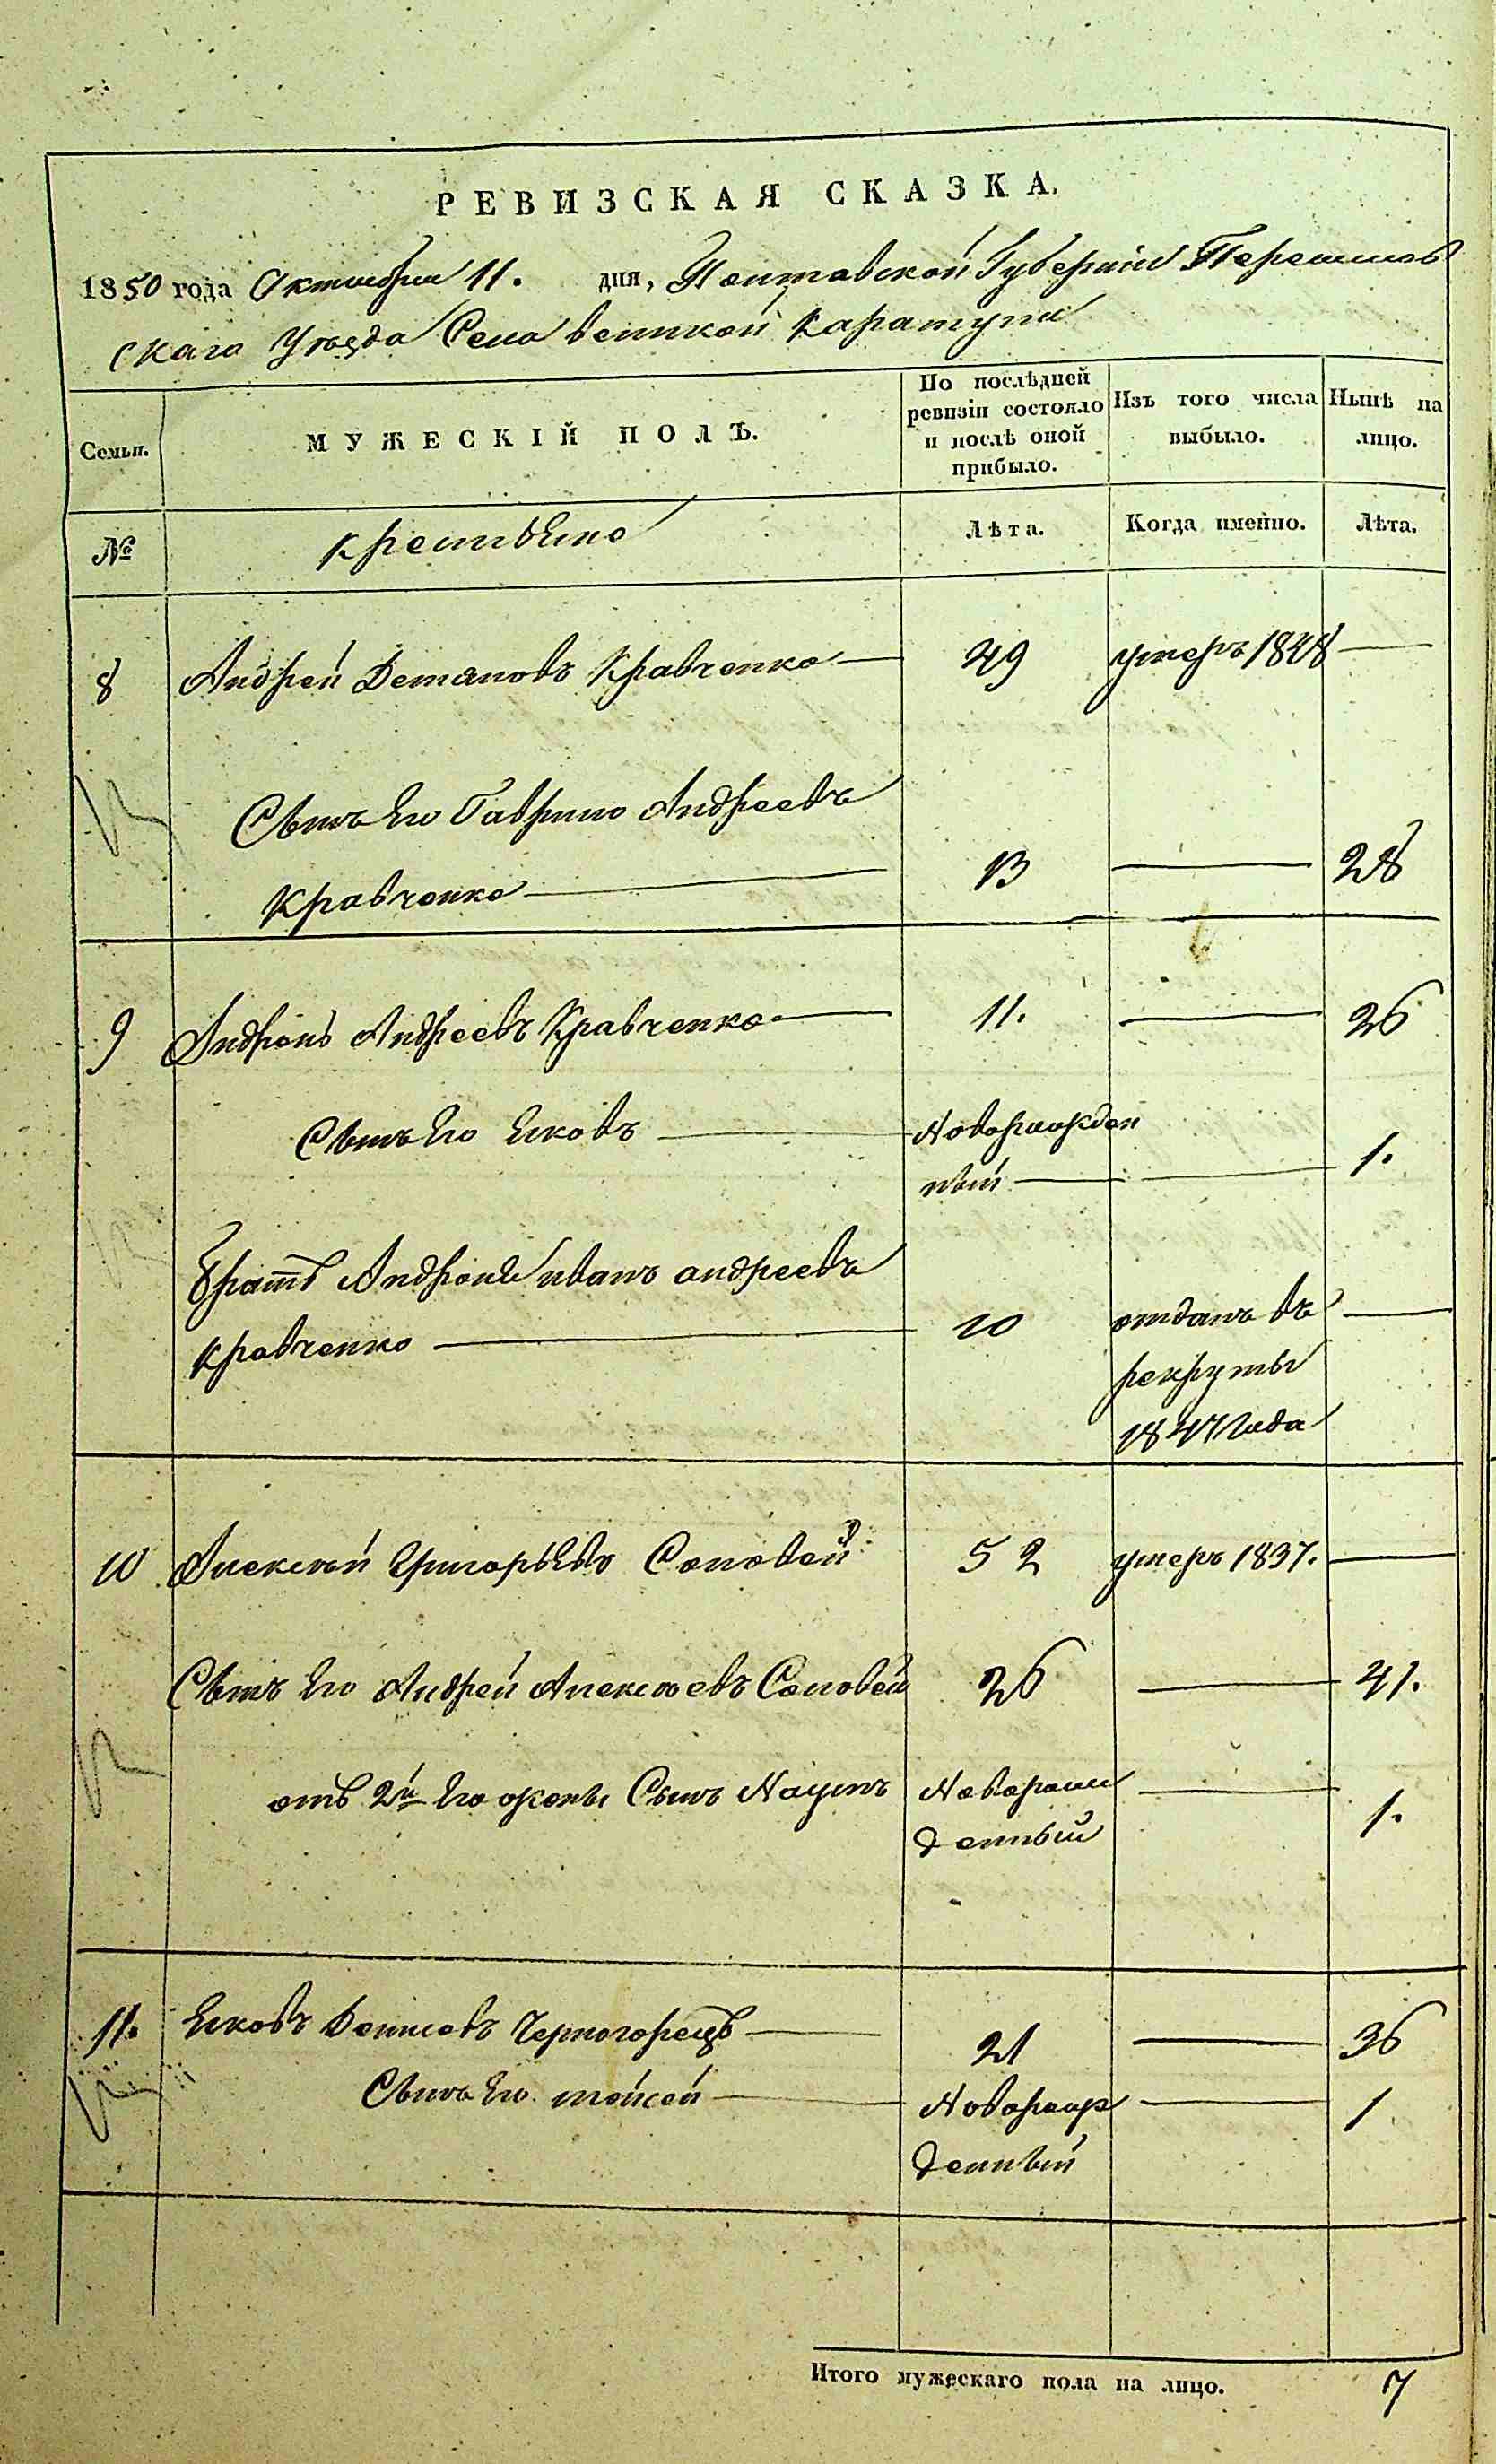 РЕВИЗСКАЯ СКАЗКА.
1850 года Октября 11. дня, Полтавской Губернии Переяслов
скаго Уѣзда Села великой Каратули
Семьи.
МУЖЕСКІЙ ПОЛЪ.
По послѣдней
ревизіи состояло
и послѣ оной
прибыло.
Изъ того числа
выбыло.
Нынѣ на
лицо.
№
крестьяне
Лѣта.
Когда именно.
Лѣта.
8 Андрей Демяновъ Кравченко — 49 умеръ 1848 —
Сынъ Его Гаврило Андреевъ
Кравченко — 13 — 28
9 Андронъ Андреевъ Кравченко — 11. — 26
Сынъ Его Яковъ — Новорожден
ный — — 1.
Братъ Андрона иванъ андреевъ
кравченко — 10 отданъ въ —
рекруты
1847 года
10 Алексѣй Григорьевъ Соловей 52 умеръ 1837. —
Сынъ Его Андрей Алексѣевъ Соловей 26 — 41.
отъ 2й Его жены Сынъ Наумъ Новорож —
денный 1.
11. Яковъ Денисовъ Черногорецъ — 21 — 36
Сынъ Его мойсей — Новорож — 1
денный
Итого мужескаго пола на лицо. 7